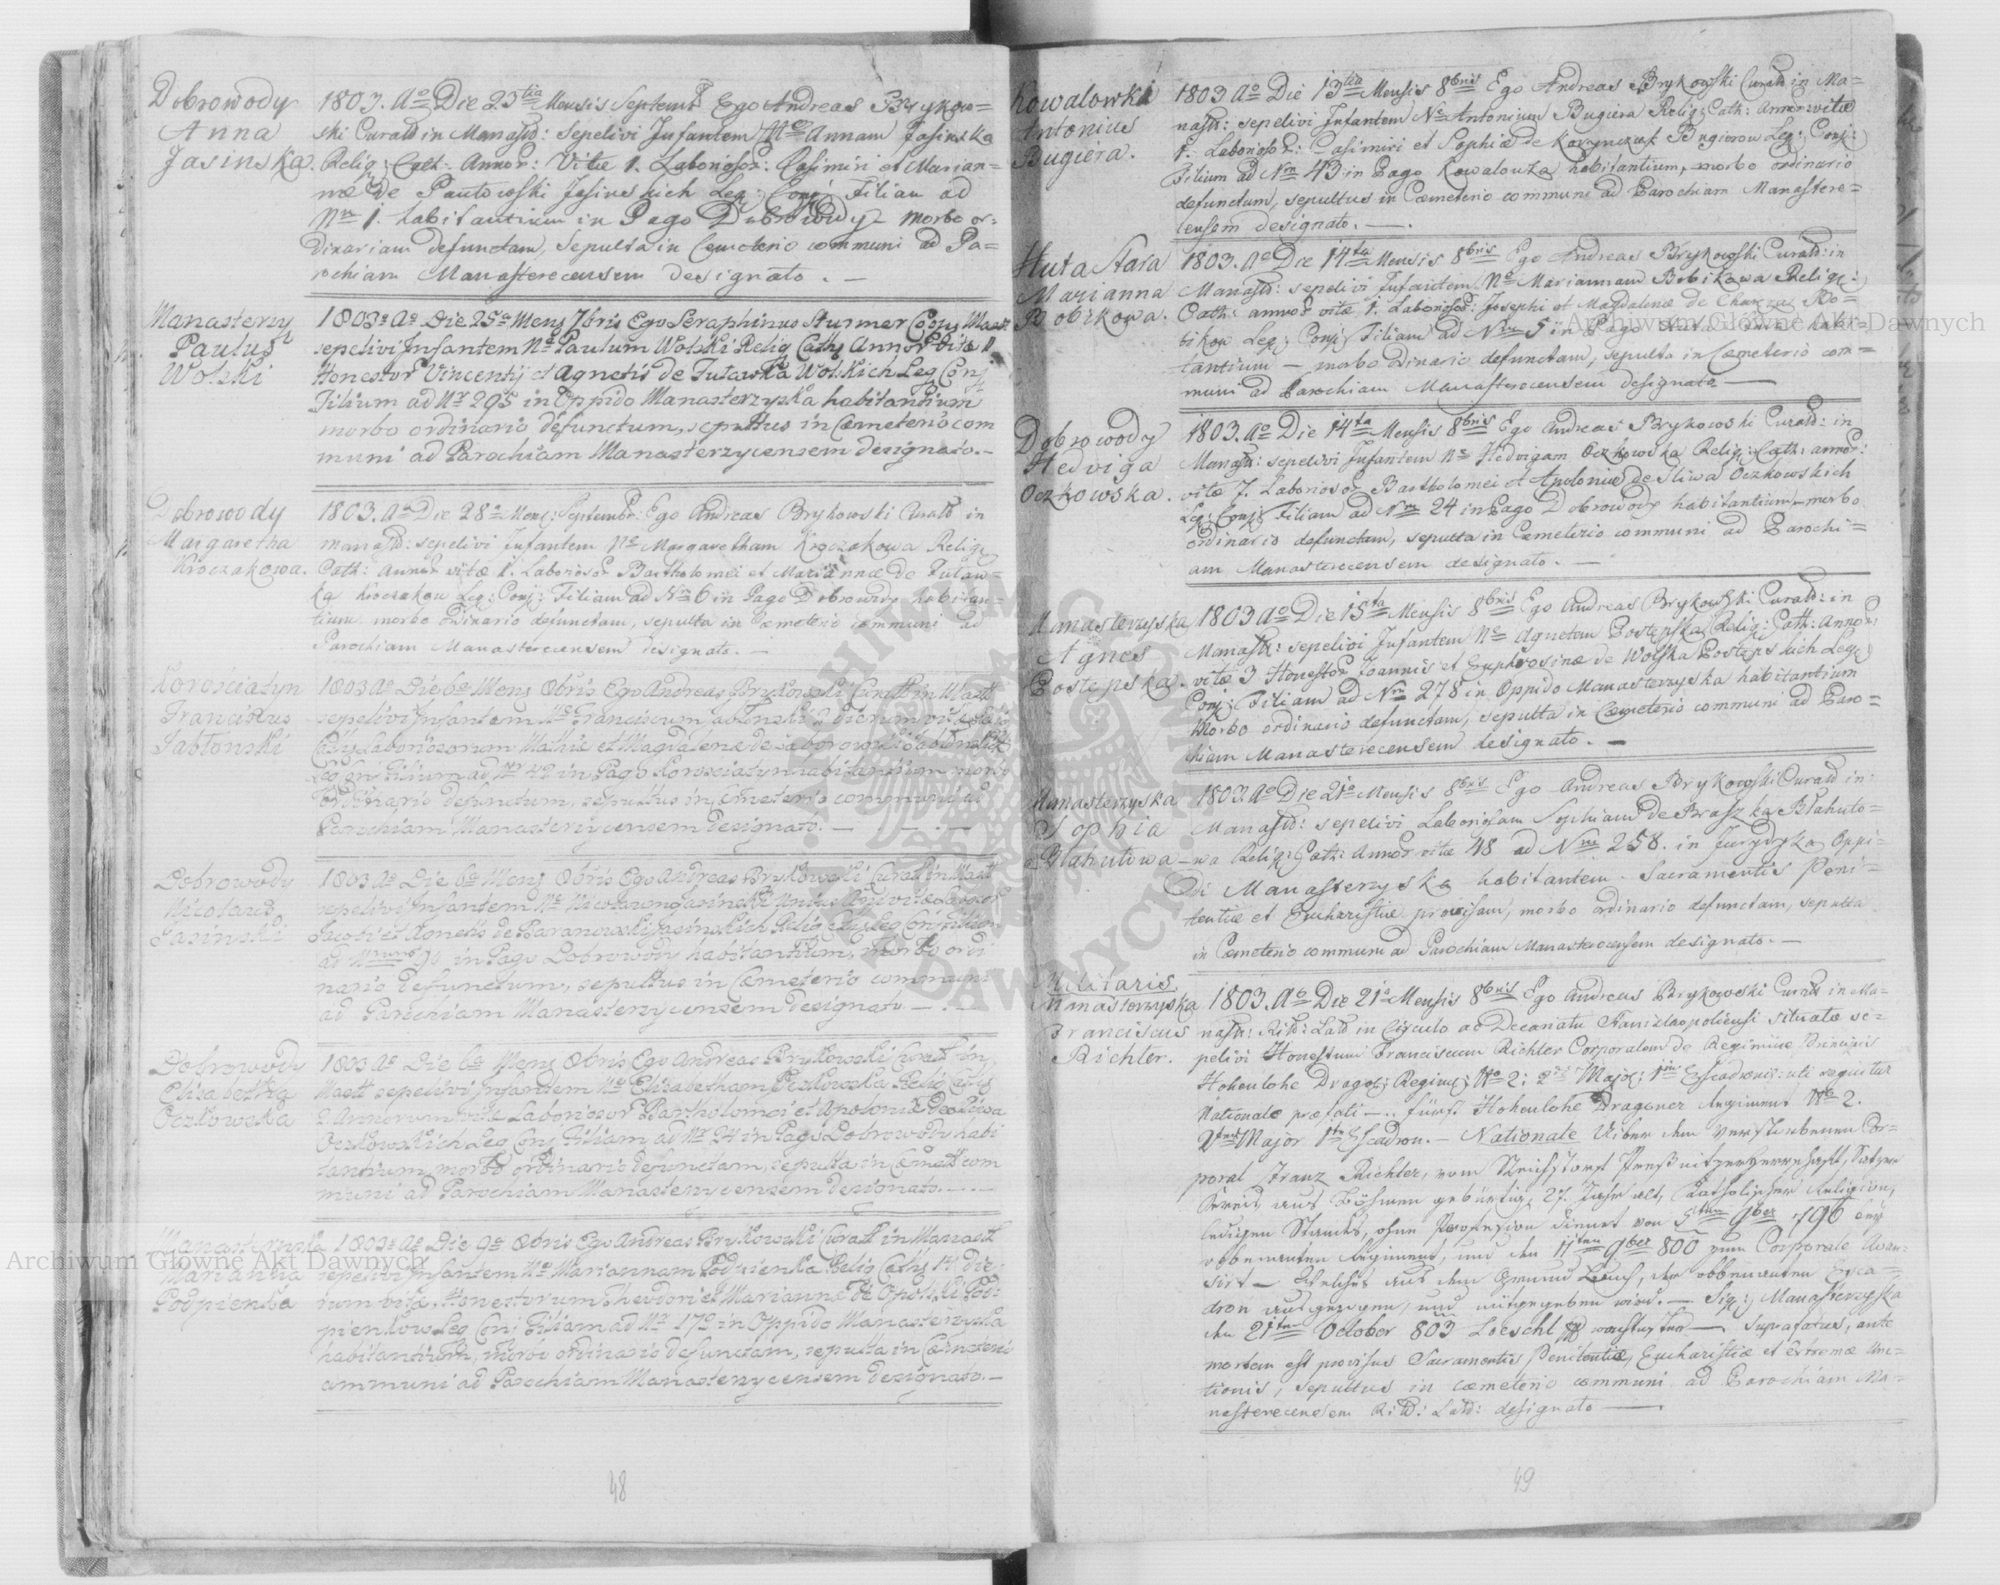 Dobrowody
Anna
Jasinska.
1803. Ao Die 23tia Mensis Septemb Ego Andreas Brykow=
ski Curatus in Manast: Sepelivi Infantem Ne Annam Jasinska
Relig: Cath: Annor: Vitæ 1. Laboriosor: Casimiri et Marian=
næ de Pautowski Jasinskich Leg: Conj: Filiam ad
Nm 1. habitantium in Pago Dobrowody Morbo or=
dinariam defunctam, Sepulta in Cemeterio communi ad Pa=
rochiam Manasterecensem designato. —
Manasterzy
Paulus
Wolski
1803o Ao Die 25a Mens 7bris Ego Seraphinus Sturmer Coop Mast
sepelivi Infantem Ne Paulum Wolski Relig Cath Annor Vitæ 1
Honestor Vincentij et Agnetis de Tutawska Wolskich Leg Conj
Filium ad Nr 295 in Oppido Manasterzyska habitantium
morbo ordinario defunctum, sepultus in Cæmeterio com
muni ad Parochiam Manasterzycensem designato. —
Dobrowody
Margaretha
Kroczakowa.
1803. Ao Die 28a Mens: Septembr: Ego Andreas Brykowski Curatus in
manast: sepelivi Infantem Ne Margaretham Kroczakowa Relig
Cath: Annor vitæ 1. Laboriosor Bartholomei et Mariannæ de Tutaw=
ka Kroczakow Leg: Conj: Filiam ad Nm 6 in Pago Dobrowody habitan=
tium morbo Ordinario defunctam, sepulta in Cæmeterio communi ad
Parochiam Manasterecensem designato. —
Korościatyn
Franciscus
Jabłonski
1803 Ao Die 6a Mens Obris Ego Andreas Brykowski Curatt in Mastt
sepelivi Infantem Ne Franciscum Jabłonski 2 Dierum vitæ Relig
Cath Laboriosorum Mathiæ et Magdalenæ de Jaborowski Jabłonskich
Leg Conj Filium ad Nr 49 in Pago Korosciatyn habitantium morbo
Ordinario defunctum, sepultus in Cæmeterio communi ad
Parochiam Manasterzycensem designato. —
Dobrowody
Nicolaus
Jasinski
1803 Ao Die 6a Mens Obris Ego Andreas Brykowski Curatt in Mastt
sepelivi Infantem Ne Nicolaum Jasinski Unius Anni vitæ Labor
Jacobi et Agnetis de Baranowski Jasinskich Relig Cath Leg Conj Filium
ad Numo 90 in Pago Dobrowody habitantium, morbo ordi
nario defunctum, sepultus in Cæmeterio communi
ad Parochiam Manasterzycensem designato. —
Dobrowody
Elisabetha
Oczkowska
1803 Ao Die 6a Mens Obris Ego Andreas Brykowski Curatt in
Mastt sepelivi Infantem Ne Elisabetham Oczkowska Relig Cath
2 Annorum vitæ Laboriosor Bartholomei et Apoloniæ de Sliwa
Oczkowskich Leg Conj Filiam ad Nr 24 in Pago Dobrowody habi
tantium, morbo ordinario defunctam, sepulta in Cæmett com
muni ad Parochiam Manasterzycensem designato. —
Manasterzyska
Marianna
Podpienka
1803o Ao Die 9a Obris Ego Andreas Brykowski Curatt in Manastt
sepelivi Infantem Ne Mariannam Podpienka Relig Cath 14 die=
rum vitæ, Honestorum Theodori et Mariannæ de Opolski Pod=
pienkow Leg Conj Filiam ad Nr 179 in Oppido Manasterzyska
habitantium, morbo ordinario defunctam, sepulta in Cæmeteri
communi ad Parochiam Manasterzycensem designato. —
48
Kowalowka
Antonius
Bugiera.
1803 Ao Die 13tia Mensis 8bris Ego Andreas Brykowski Curatt in Ma=
nastr: sepelivi Infantem Ne Antonium Bugiera Relig: Cath: annor vitæ
1. Laborioso: Casimiri et Sophiæ de Bugierow Leg: Conj:
Filium ad Nm 43 in Pago Kowalowka habitantium, morbo ordinario
defunctum, sepultus in Cæmeterio communi ad Parochiam Manastere=
censem designato. —.
Huta Stara
Marianna
Bobikowa.
1803. Ao Die 14ta Mensis 8bris Ego Andreas Brykowski Curatt: in
Manast: sepelivi Infantem Ne Mariannam Bobikowa Relig:
Cath: annor vitæ 1. Laborioso: Josephi et Magdalenæ de Bo=
bikow Leg: Conj: Filiam ad Nm 5 in Pago Huta Stara habi=
tantium — morbo Dinario defunctam, sepulta in Cæmeterio com=
muni ad Parochiam Manasterecensem designato —
Dobrowody
Hedviga
Oczkowska.
1803. Ao Die 14ta Mensis 8bris Ego Andreas Brykowski Curatt: in
Manast: sepelivi Infantem Ne Hedvigam Oczkowska Relig: Cath: annor:
vitæ 7. Laboriosor Bartholomei et Apoloniæ de Sliwa Oczkowskich
Leg: Conj: Filiam ad Nm 24 in Pago Dobrowody habitantium — morbo
ordinario defunctam, sepulta in Cæmeterio communi ad Parochi=
am Manasterecensem designato. —
Manasterzyska
Agnes
Postępska.
1803 Ao Die 15ta Mensis 8bris Ego Andreas Brykowski Curatt: in
Manast: sepelivi Infantem Ne Agnetem Postępska Relig: Cath: Annor:
vitæ 3 Honestor Joannis et Euphrosinæ de Wolska Postępskich Leg:
Conj: Filiam ad Nm 278 in Oppido Manasterzyska habitantium
Morbo ordinario defunctam, sepulta in Cæmeterio communi ad Paro=
chiam Manasterecensem designato. —
Manasterzyska
Sophia
Błahutowa
1803. Ao Die 21a Mensis 8bris Ego Andreas Brykowski Curatt in:
Manast: sepelivi Laboriosam Sophiam de Braszka Błahuto=
wa Relig: Cath: Annor vitæ 48 ad Nm 258. in Jurydyka Oppi=
di Manasterzyska habitantem. Sacramentis Peni=
tentiæ et Eucharistiæ provisam, morbo ordinario defunctam, sepulta
in Cæmeterio communi ad Parochiam Manasterecensem designato. —
Militaris
Manasterzyska
Franciscus
Richler.
1803. Ao Die 21a Mensis 8bris Ego Andreas Brykowski Curatt in Ma=
nastr: Rit: Latt in Circulo ac Decanatu Stanislaopoliensi situatæ se=
pelivi Honestum Franciscum Richler Corporalem de Regimine Principis
Hohenlohe Dragoj: Regim: No 2: 2di Major: 1mi Escadronis: uti sequitur
Nationale præfati —.. Fürst Hohenlohe Dragoner Regiment No 2.
2ten Major 1te Escadron. — Nationale Uiber den Verstorbenen Cor=
poral Franz Richler, vom
aus Böhmen gebürtig, 27. Jahr alt, Katholischer Religion,
ledigen Standes, ohne Profession dienet von 5ten 9ber 796 bey
obbenanten Regiment, und den 11ten 9ber 800 zum Corporale Avan=
sirt — Welches aus dem Grund Buch, der obbenanten Esca=
dron ausgezogen, und mitgegeben wird. — Sig: Manasterzyska
den 21ten October 803 Loeschl — Suprafatus, ante
mortem est provisus Sacramentis Penitentiæ, Eucharistiæ et Extremæ Unc=
tionis, sepultus in cæmeterio communi ad Parochiam Ma=
nasterecensem Rit: Latt: designato —.
49
Archiwum Główne Akt Dawnych
Archiwum Główne Akt Dawnych